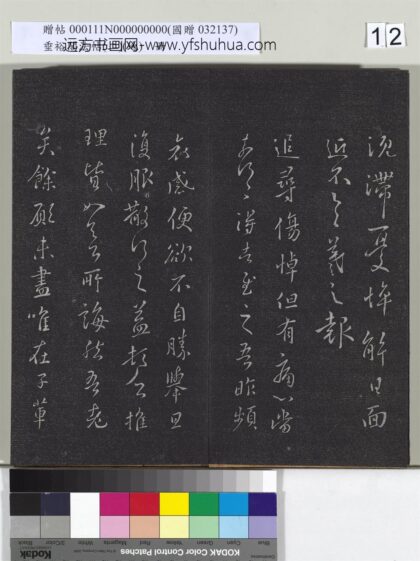 贈帖 000111N000000000(國贈 032137)
远方书画网 www.yfshuhua.com
12
沉滯憂悴解日面
近不具羲之報
追尋傷悼但有痛心當
奈何奈何得告慰之吾昨頻
哀感便欲不自勝舉旦
復服散行之益頓乏推
理皆如足下所誨然吾老
矣餘願未盡唯在子輩
Kodak
Black
3/Color
White
Magenta
Red
Yellow
Green
Cyan
Blue
KODAK Color Control Patches